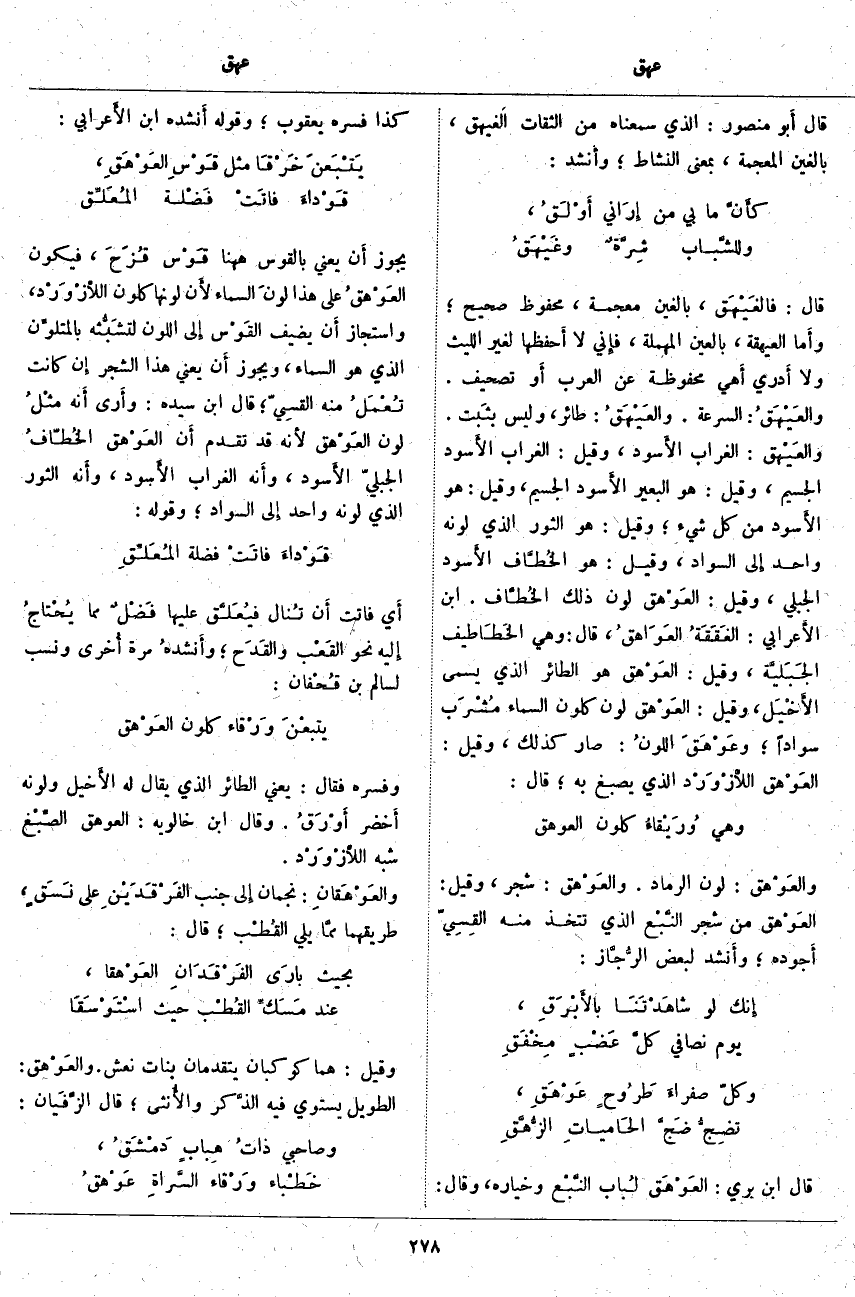 عهق
عهق
قال أبو منصور : الذي سمعناه من الثقات الغيهق ،
بالغين المعجمة ، بمعنى النشاط ؛ وأنشد :
كأنَّ ما بي من إرَاني أوْلَقُ ،
وللشَّباب شِرَّةٌ وغَيْهَقُ
قال : فالغَيْهَق ، بالغين معجمة ، محفوظ صحيح ؛
وأما العيهقة ، بالعين المهملة ، فإني لا أحفظها لغير الليث
ولا أدري أهي محفوظة عن العرب أو تصحيف .
والعَيْهَقُ : السرعة . والعَيْهَقُ : طائر ، وليس بثبت .
والعَيْهَق : الغراب الأسود ، وقيل : الغراب الأسود
الجسيم ، وقيل : هو البعير الأسود الجسيم ، وقيل : هو
الأسود من كل شيء ؛ وقيل : هو الثور الذي لونه
واحد إلى السواد ، وقيل : هو الخُطَّاف الأسود
الجبلي ، وقيل : العَوْهق لون ذلك الخُطَّاف . ابن
الأعرابي : الغَقَقَةُ العَوَاهقُ ، قال : وهي الخَطَاطيف
الجَبَليَّة ، وقيل : العَوْهق هو الطائر الذي يسمى
الأخْيَل ، وقيل : العَوْهق لون كلون السماء مُشْرَب
سواداً ؛ وعَوْهَقَ اللونُ : صار كذلك ، وقيل :
العَوْهق اللأزْوَرْد الذي يصبغ به ؛ قال :
وهي وُرَيْقاءُ كلون العوهق
والعَوْهق : لون الرماد . والعَوْهق : شجر ، وقيل :
العَوْهق من شجر النَّبْع الذي تتخذ منه القِسِيّ
أجوده ؛ وأنشد لبعض الرُّجَّاز :
إنك لو شاهَدْتَنَا بالأبْرَقِ ،
يوم نصافي كلَّ عَضْبٍ مِخْفَقِ
وكلّ صفراء طَرُوحٍ عَوْهَقِ ،
تضجُّ ضَجَّ الحاميات الزُّهَّقِ
قال ابن بري : العَوْهَق لُباب النَّبْع وخياره ، وقال :
كذا فسره يعقوب ؛ وقوله أنشده ابن الأعرابي :
يَتْبَعنَ خَرْقا مثل قَوْسِ العَوْهَقِ ،
قَوْداءَ فاتَتْ فَضْلة المُعَلِّق
يجوز أن يعني بالقوس ههنا قَوْس قُزَحَ ، فيكون
العَوْهَقُ على هذا لونَ السماء لأن لونها كلون اللأزْوَرْد ،
واستجاز أن يضيف القَوْس إلى اللون لتشَبُّثه بالمتلوّن
الذي هو السماء ، ويجوز أن يعني هذا الشجر إن كانت
تُعْمَلُ منه القسيّ ؛ قال ابن سيده : وأرى أنه مثلُ
لون العَوْهق لأنه قد تقدم أن العَوْهق الخُطّافُ
الجبليّ الأسود ، وأنه الغراب الأسود ، وأنه الثور
الذي لونه واحد إلى السواد ؛ وقوله :
قَوْداءَ فاتَتْ فضلة المُعَلِّقِ
أي فاتت أن تُنال فيُعَلَّق عليها فَضْلٌ مما يُحْتاجُ
إليه نحو القَعْب والقَدَح ؛ وأنشدهُ مرة أُخرى ونسب
لسالم بن قُحْفان :
يتبعْنَ وَرْقاء كلون العَوْهق
وفسره فقال : يعني الطائر الذي يقال له الأخيل ولونه
أخضر أوْرَقُ . وقال ابن خالويه : العوهق الصِّبْغ
شبه اللأزْوَرْد .
والعَوْهَقانِ : نجمان إلى جنب الفَرْقَدَيْنِ على نَسَقٍ ،
طريقهما ممّا يلي القُطْب ؛ قال :
بحيث بارَى الفَرْقَدَانِ العَوْهقا ،
عند مَسَكّ القُطْب حيث اسْتَوْسَقَا
وقيل : هما كوكبان يتقدمان بنات نعش . والعَوْهق :
الطويل يستوي فيه الذَّكر والأُنثى ؛ قال الزَّفَيان :
وصاحبي ذاتُ هِبابٍ دَمْشَقُ ،
خَطْباء وَرْقاء السَّراةِ عَوْهقُ
٢٧٨